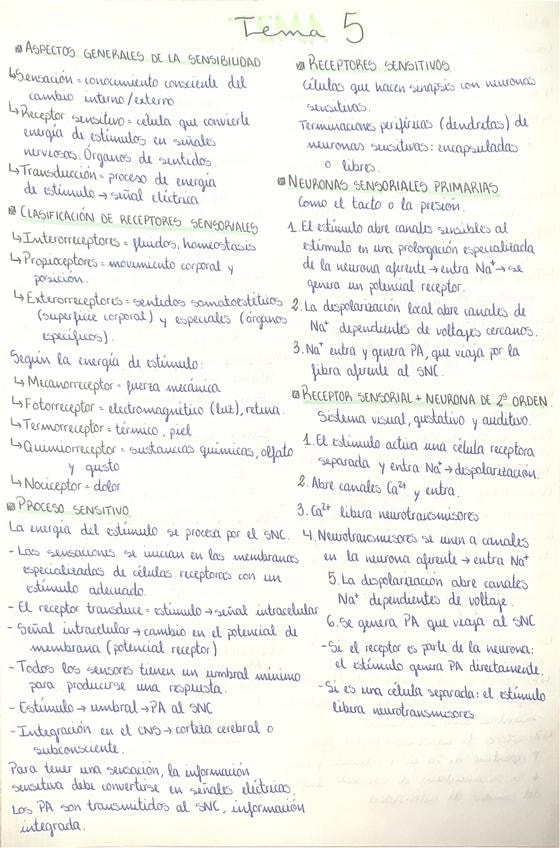 Tema 5
ASPECTOS GENERALES DE LA SENSIBILIDAD
↳Sensación = conocimiento consciente del
cambio interno/externo
↳Receptor sensitivo = celula que convierte
energía de estímulos en señales
nerviosas. Órganos de sentidos.
↳Transducción = proceso de energía
de estímulo → señal eléctrica
CLASIFICACIÓN DE RECEPTORES SENSORIALES
↳Interorreceptores = fluidos, homeostasis
↳Propioceptores = movimiento corporal y
posición.
↳Exterorreceptores = sentidos somatoestéticos
(superficie corporal) y especiales (órganos
específicos).
Según la energía de estímulo:
↳Mecanorreceptor = fuerza mecánica
↳Fotorreceptor = electromagnético (luz), retina.
↳Termorreceptor = térmico, piel
↳Quimiorreceptor = sustancias químicas, olfato
y gusto
↳Nociceptor = dolor
PROCESO SENSITIVO
La energía del estímulo se procesa por el SNC.
- Las sensaciones se inician en las membranas
especializadas de células receptoras con un
estímulo adecuado.
- El receptor transduce = estímulo → señal intracelular
- Señal intracelular → cambio en el potencial de
membrana (potencial receptor)
- Todos los sensores tienen un umbral mínimo
para producirse una respuesta.
- Estímulo → umbral → PA al SNC
- Integración en el CNS → corteza cerebral o
subconsciente.
Para tener una sensación, la información
sensitiva debe convertirse en señales eléctricas.
Los PA son transmitidos al SNC, información
integrada.
RECEPTORES SENSITIVOS
Células que hacen sinapsis con neuronas
sensitivas.
Terminaciones periféricas (dendritas) de
neuronas sensitivas: encapsuladas
o libres.
NEURONAS SENSORIALES PRIMARIAS
Como el tacto o la presión.
1. El estímulo abre canales sensibles al
estímulo en una prolongación especializada
de la neurona aferente → entra Na⁺ → se
genera un potencial receptor.
2. La despolarización local abre canales de
Na⁺ dependientes de voltajes cercanos.
3. Na⁺ entra y genera PA, que viaja por la
fibra aferente al SNC.
RECEPTOR SENSORIAL + NEURONA DE 2º ORDEN.
Sistema visual, gustativo y auditivo.
1. El estímulo activa una célula receptora
separada y entra Na⁺ → despolarización.
2. Abre canales Ca²⁺ y entra.
3. Ca²⁺ libera neurotransmisores
4. Neurotransmisores se unen a canales
en la neurona aferente → entra Na⁺
5. La despolarización abre canales
Na⁺ dependientes de voltaje.
6. Se genera PA que viaja al SNC
- Si el receptor es parte de la neurona:
el estímulo genera PA directamente.
- Si es una célula separada: el estímulo
libera neurotransmisores